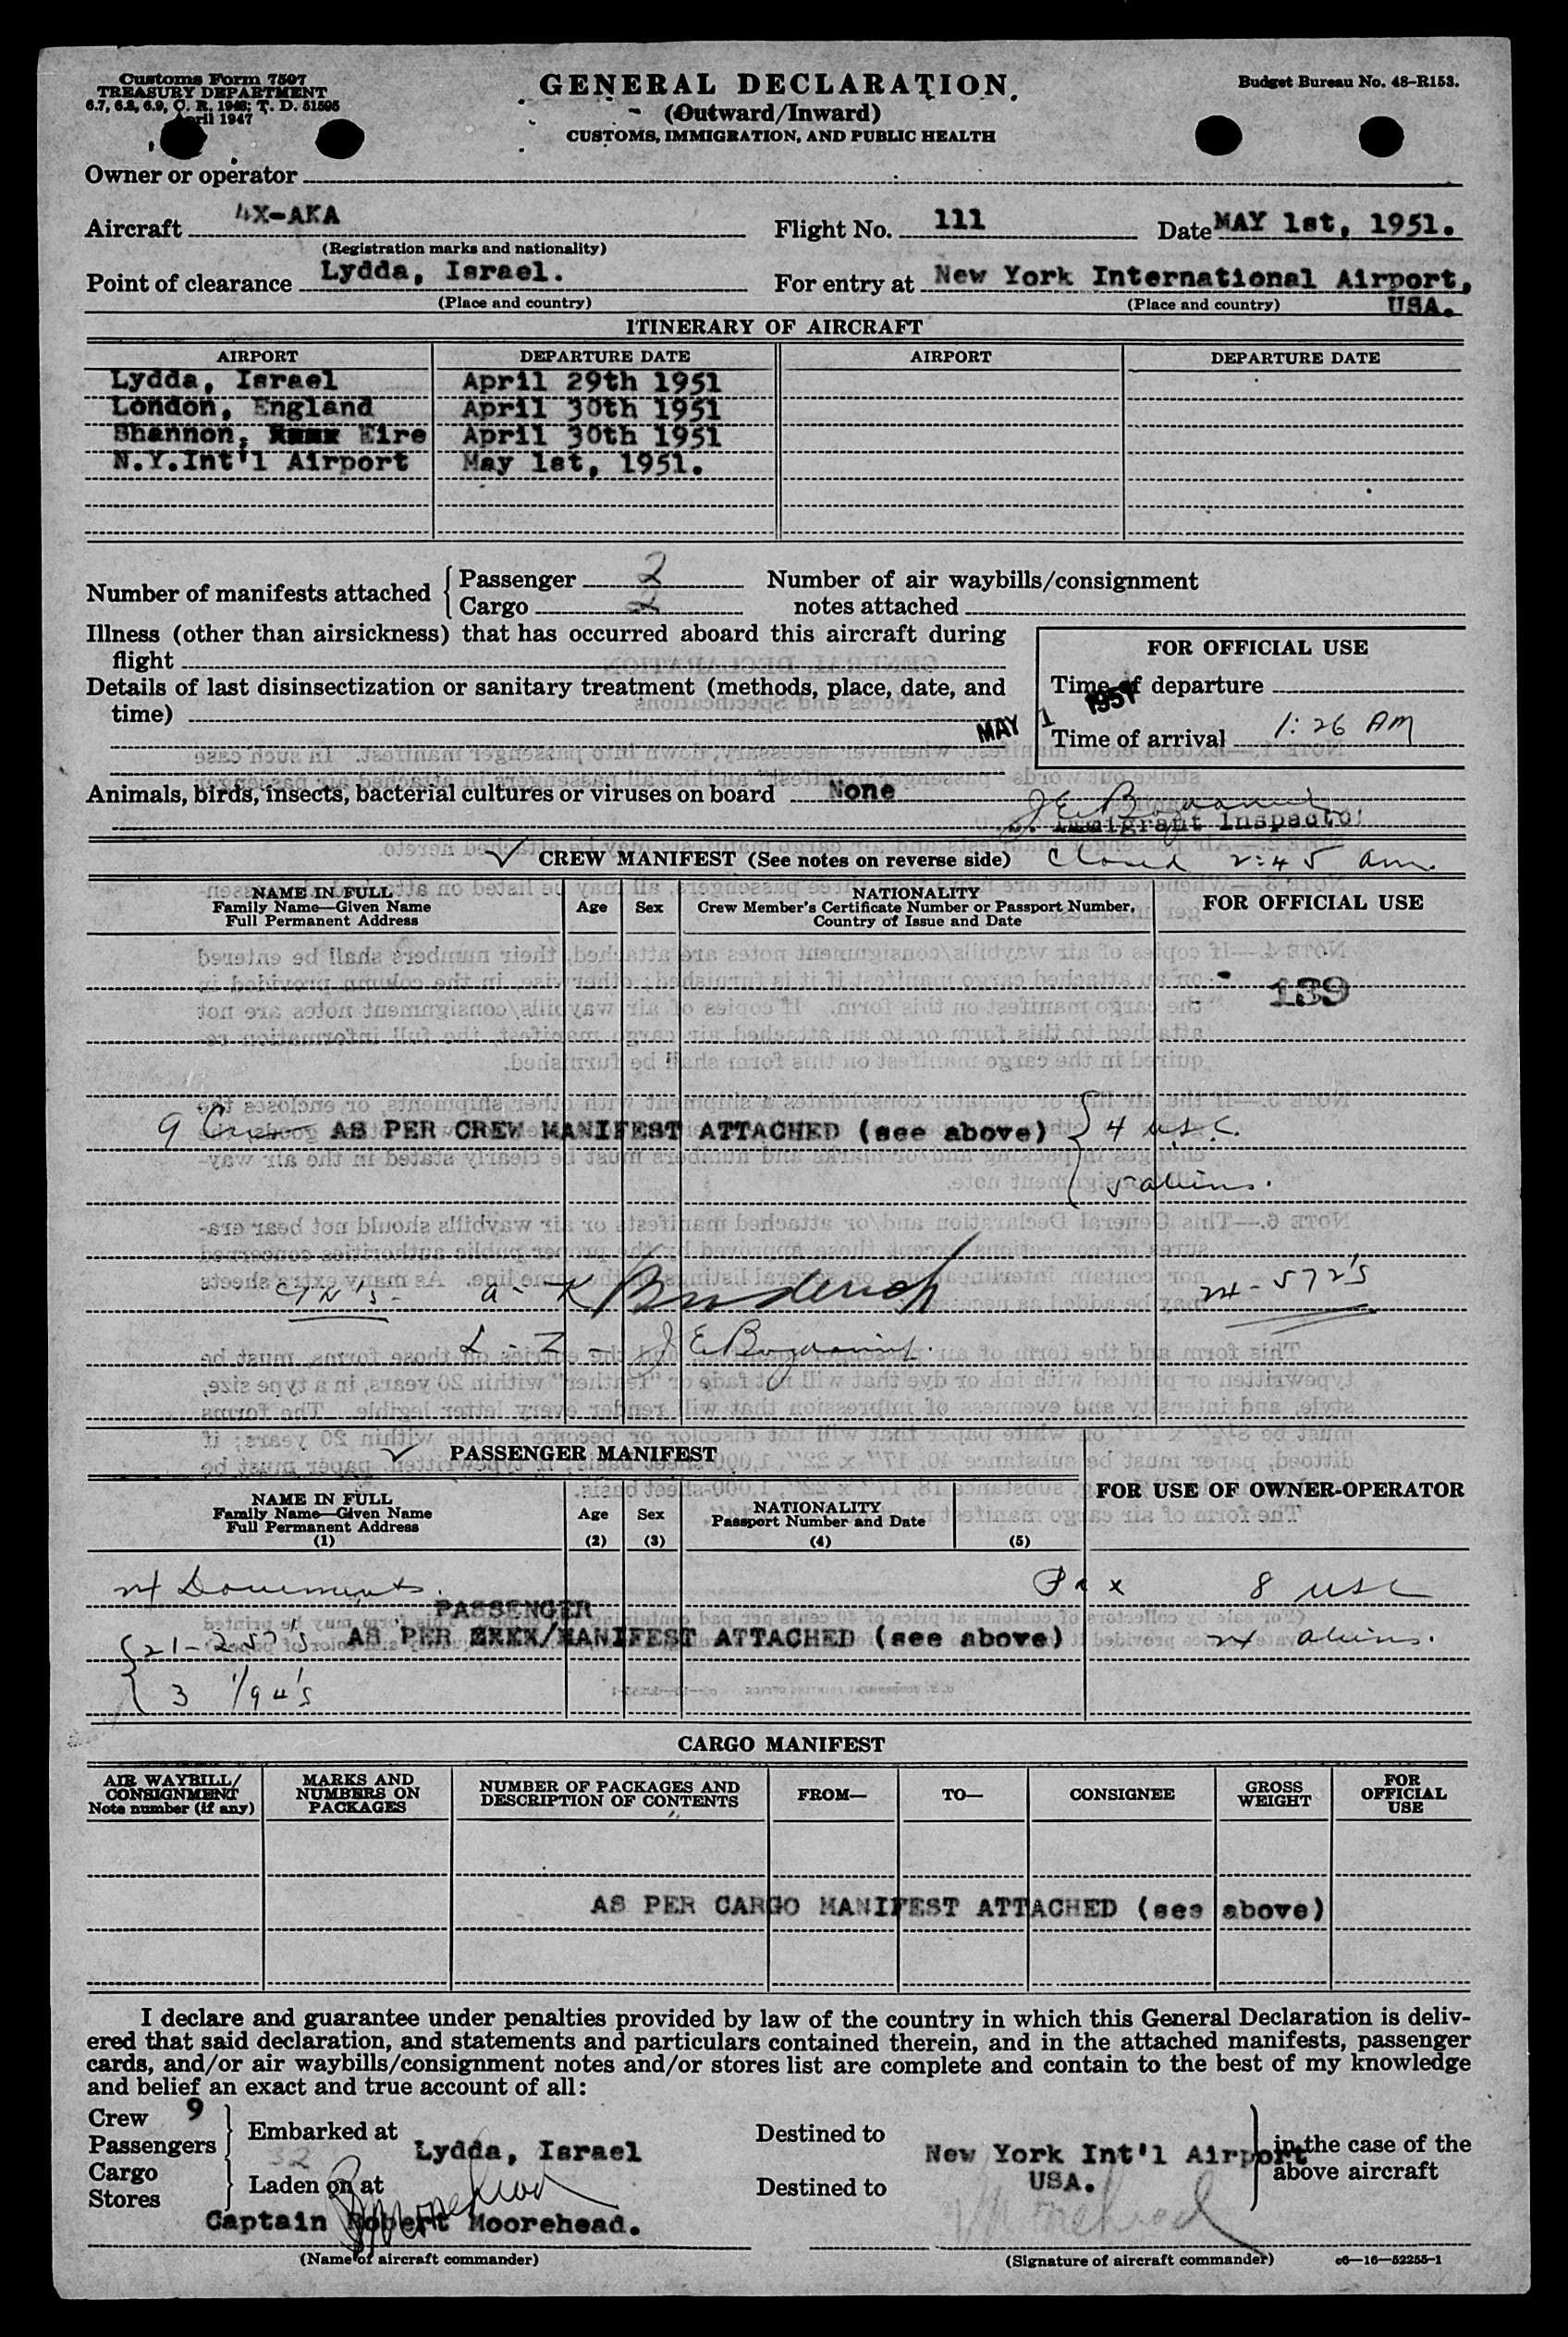 Customs Form 7507
TREASURY DEPARTMENT
6.7, 6.8, 6.9, C. R. 1943; T. D. 51595
April 1947
GENERAL DECLARATION
(Outward/Inward)
CUSTOMS, IMMIGRATION, AND PUBLIC HEALTH
Budget Bureau No. 48-R153.
Owner or operator
Aircraft 4X-AKA
(Registration marks and nationality)
Flight No. 111
Date MAY 1st, 1951.
Point of clearance Lydda, Israel.
(Place and country)
For entry at New York International Airport,
(Place and country) USA.
ITINERARY OF AIRCRAFT
AIRPORT DEPARTURE DATE AIRPORT DEPARTURE DATE
Lydda, Israel April 29th 1951
London, England April 30th 1951
Shannon, Eire April 30th 1951
N.Y.Int'l Airport May 1st, 1951.
Number of manifests attached { Passenger 2
Cargo 2
Number of air waybills/consignment
notes attached
Illness (other than airsickness) that has occurred aboard this aircraft during
flight
Details of last disinsectization or sanitary treatment (methods, place, date, and
time)
FOR OFFICIAL USE
Time of departure
MAY 1 1951
Time of arrival 1:26 AM
Animals, birds, insects, bacterial cultures or viruses on board None
Immigrant Inspector
CREW MANIFEST (See notes on reverse side) Closed 2:45 am.
NAME IN FULL
Family Name—Given Name
Full Permanent Address
Age
Sex
NATIONALITY
Crew Member's Certificate Number or Passport Number,
Country of Issue and Date
FOR OFFICIAL USE
139
9 Crew AS PER CREW MANIFEST ATTACHED (see above) { 4 u.s.c.
5 aliens.
a - K Broderick
24 - 572's
L - Z - J E
PASSENGER MANIFEST
NAME IN FULL
Family Name—Given Name
Full Permanent Address
(1)
Age
(2)
Sex
(3)
NATIONALITY
Passport Number and Date
(4)
(5)
FOR USE OF OWNER-OPERATOR
24 Documents.
Pax 8 USC
PASSENGER
21 - 257's AS PER MANIFEST ATTACHED (see above)
24 aliens.
3 1/94's
CARGO MANIFEST
AIR WAYBILL/
CONSIGNMENT
Note number (if any)
MARKS AND
NUMBERS ON
PACKAGES
NUMBER OF PACKAGES AND
DESCRIPTION OF CONTENTS
FROM—
TO—
CONSIGNEE
GROSS
WEIGHT
FOR
OFFICIAL
USE
AS PER CARGO MANIFEST ATTACHED (see above)
I declare and guarantee under penalties provided by law of the country in which this General Declaration is deliv-
ered that said declaration, and statements and particulars contained therein, and in the attached manifests, passenger
cards, and/or air waybills/consignment notes and/or stores list are complete and contain to the best of my knowledge
and belief an exact and true account of all:
Crew 9
Passengers 32
Embarked at Lydda, Israel
Destined to New York Int'l Airport
USA.
in the case of the
above aircraft
Cargo
Stores
Laden on at
Destined to
Captain Robert Moorehead.
(Name of aircraft commander)
(Signature of aircraft commander)
c6—16—52255-1